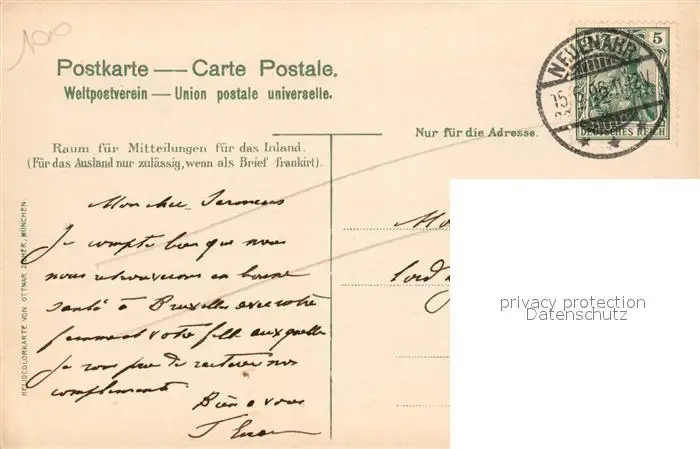 Postkarte — Carte Postale.
Weltpostverein — Union postale universelle.
5
NEUENAHR
DEUTSCHES REICH
Raum für Mitteilungen für das Inland.
(Für das Ausland nur zulässig, wenn als Brief frankirt).
Nur für die Adresse.
Mon cher
Je compte bien que nous
nous retrouverons en bonne
santé à Bruxelles avec votre
femme et votre fille auxquelles
je vous prie de réitérer nos
compliments.
Bien à vous
HELIOCOLORKARTE VON OTTMAR ZIEHER, MÜNCHEN
privacy protection
Datenschutz